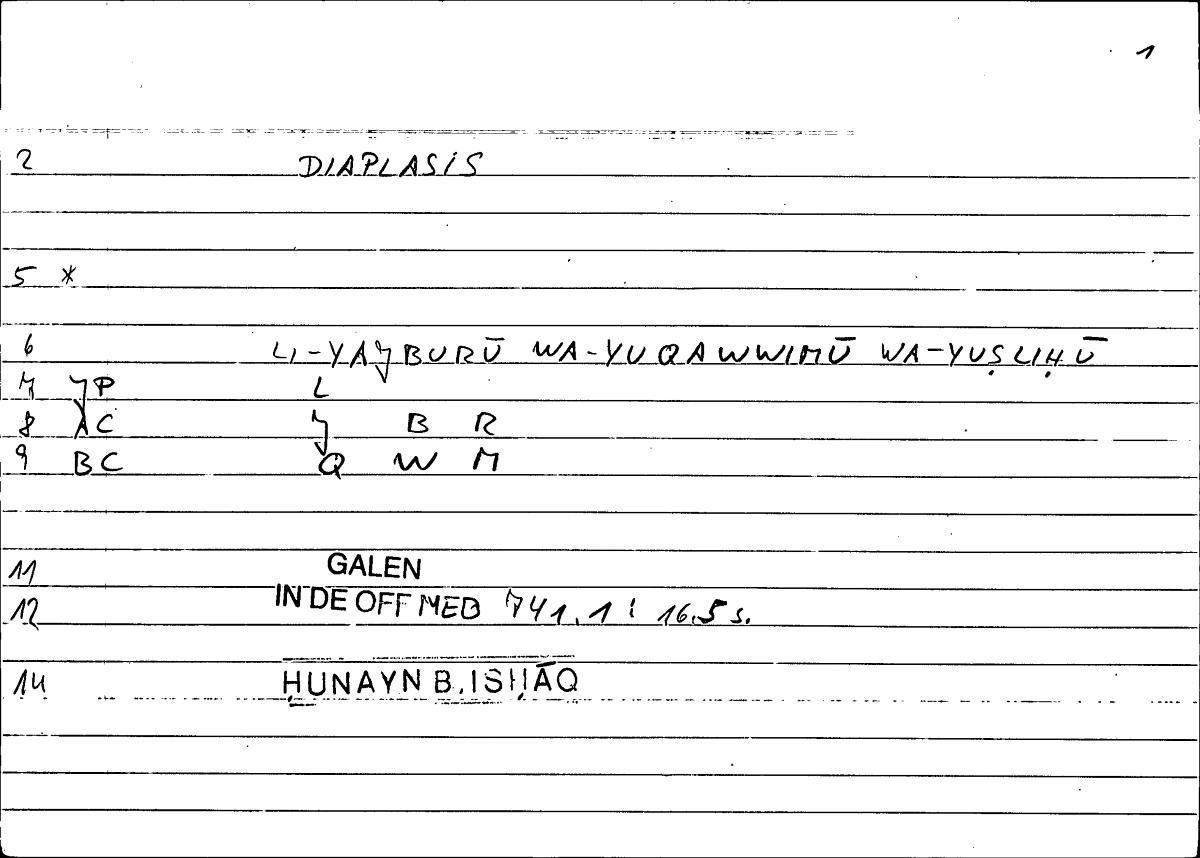 1
2 DIAPLASIS
5 *
6 LI-YAJBURŪ WA-YUQAWWIMŪ WA-YUṢLIḤŪ
7 JP L
8 AC J B R
9 BC Q W M
11 GALEN
12 IN DE OFF MED 741.1 : 16.5 s.
14 ḤUNAYN B. ISḤĀQ